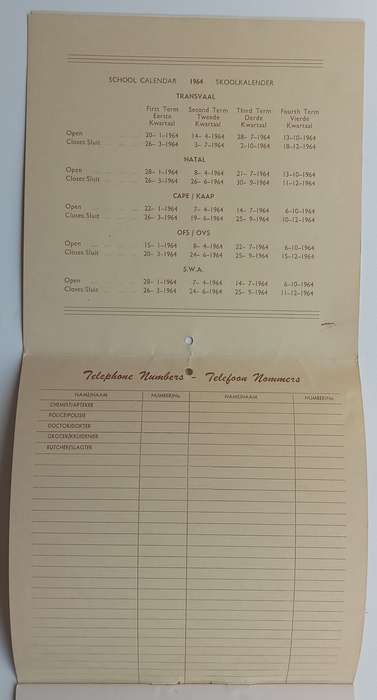 SCHOOL CALENDAR 1964 SKOOLKALENDER
TRANSVAAL
First Term Second Term Third Term Fourth Term
Eerste Tweede Derde Vierde
Kwartaal Kwartaal Kwartaal Kwartaal
Open 20– 1–1964 14– 4–1964 28– 7–1964 13–10–1964
Closes Sluit 26– 3–1964 3– 7–1964 2–10–1964 18–12–1964
NATAL
Open 28– 1–1964 8– 4–1964 21– 7–1964 13–10–1964
Closes Sluit 26– 3–1964 26– 6–1964 30– 9–1964 11–12–1964
CAPE / KAAP
Open 22– 1–1964 7– 4–1964 14– 7–1964 6–10–1964
Closes Sluit 26– 3–1964 19– 6–1964 25– 9–1964 10–12–1964
OFS / OVS
Open 15– 1–1964 8– 4–1964 22– 7–1964 6–10–1964
Closes Sluit 20– 3–1964 26– 6–1964 25– 9–1964 15–12–1964
S.W.A.
Open 28– 1–1964 7– 4–1964 14– 7–1964 6–10–1964
Closes Sluit 26– 3–1964 24– 6–1964 25– 9–1964 11–12–1964
Telephone Numbers - Telefoon Nommers
NAME/NAAM NUMBER/No. NAME/NAAM NUMBER/No.
CHEMIST/APTEKER
POLICE/POLISIE
DOCTOR/DOKTER
GROCER/KRUIDENIER
BUTCHER/SLAGTER